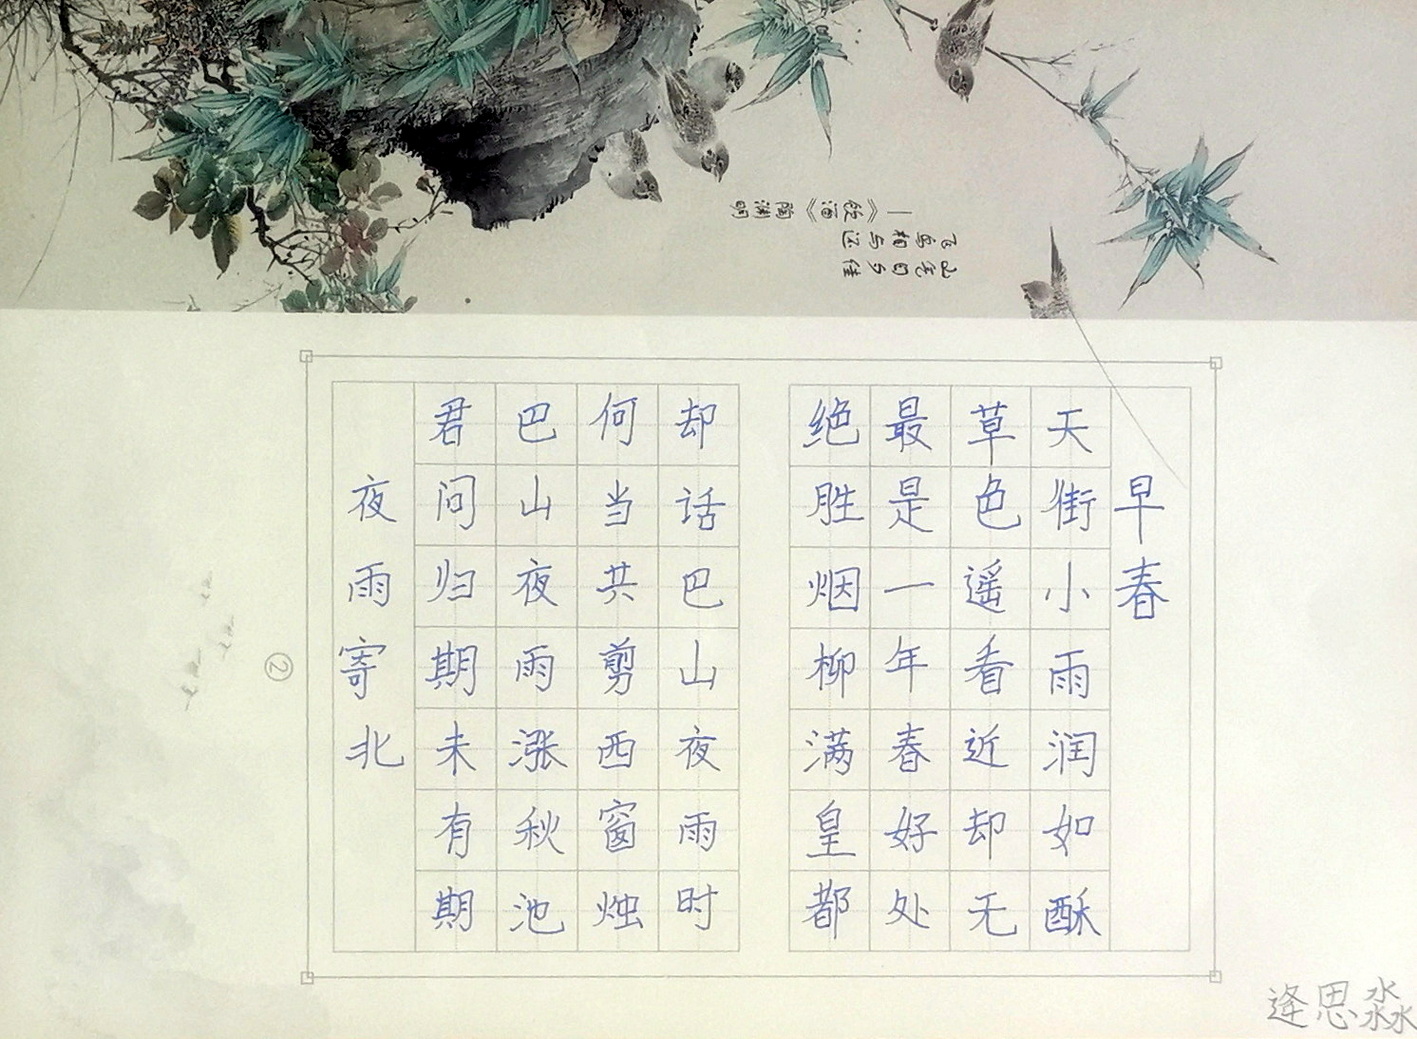 山气日夕佳
飞鸟相与还
—《饮酒》陶渊明
早春
天街小雨润如酥
草色遥看近却无
最是一年春好处
绝胜烟柳满皇都
夜雨寄北
君问归期未有期
巴山夜雨涨秋池
何当共剪西窗烛
却话巴山夜雨时
②
逢思淼